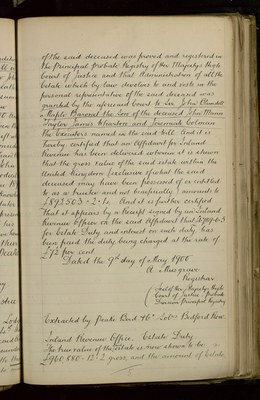 of the said deceased was proved and registered in
the Principal Probate Registry of Her Majesty's High
Court of Justice and that Administration of all the
Estate which by law devolves to and vests in the
personal representative of the said deceased was
granted by the aforesaid Court to Sir John Blundell
Maple Baronet the Son of the deceased John
Taylor James and Jeremiah Colman
the Executors named in the said Will. And it is
hereby certified that an Affidavit for Inland
Revenue has been delivered wherein it is shewn
that the gross value of the said estate within the
United Kingdom (exclusive of what the said
deceased may have been possessed of or entitled
to as a trustee and not beneficially) amounts to
£892503-2-10. And it is further certified
That it appears by a receipt signed by an Inland
Revenue Officer on the said Affidavit that
for Estate Duty and interest on such duty has
been paid the duty being charged at the rate of
£7½ per cent
Dated the 9th day of May 1900
Musgrave
Registrar
Seal of Her Majestys High
Court of Justice Probate
Division Principal Registry
Extracted by Bedford Row
Inland Revenue Office, Estate Duty
The true value of the Estate is now shewn to be
gross, and the amount of Estate